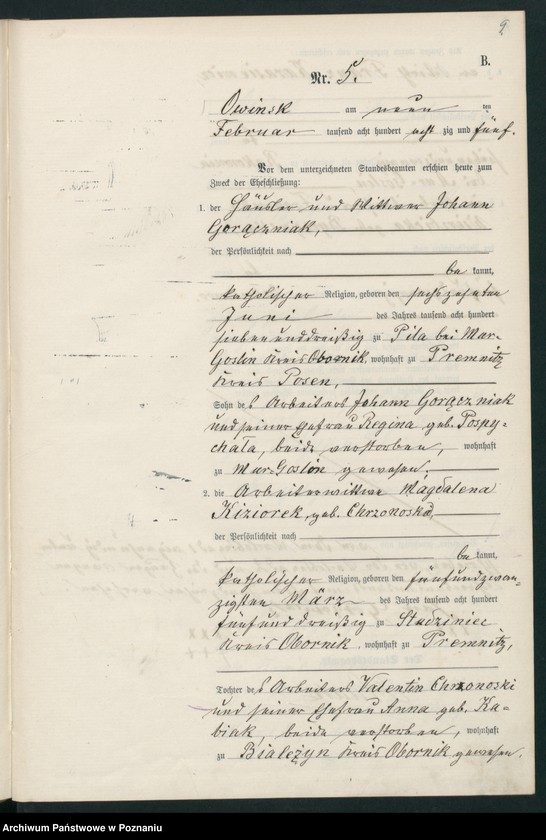 2
B.
Nr. 5.
Owinsk am neun ten
Februar tausend acht hundert acht zig und fünf.
Vor dem unterzeichneten Standesbeamten erschien heute zum
Zweck der Eheschließung:
1. der Häusler und Wittwer Johann
Gorączniak,
der Persönlichkeit nach
be kannt,
katholischer Religion, geboren den sechszehnten
Juni des Jahres tausend acht hundert
siebenunddreißig zu Pila bei Mur-
Goslin Kreis Obornik, wohnhaft zu Promnitz
Kreis Posen,
Sohn des Arbeiters Johann Gorączniak
und seiner Ehefrau Regina geb. Pospy-
chała, beide verstorben, wohnhaft
zu Mur-Goslin gewesen.
2. die Arbeiterwittwe Magdalena
Kiziorek, geb. Chrzonoska,
der Persönlichkeit nach
be kannt,
katholischer Religion, geboren den fünfundzwan-
zigsten März des Jahres tausend acht hundert
fünfunddreißig zu Studziniec
Kreis Obornik, wohnhaft zu Promnitz,
Tochter des Arbeiters Valentin Chrzonoski
und seiner Ehefrau Anna geb. Ka-
biak, beide verstorben, wohnhaft
zu Białężyn Kreis Obornik gewesen.
Archiwum Państwowe w Poznaniu